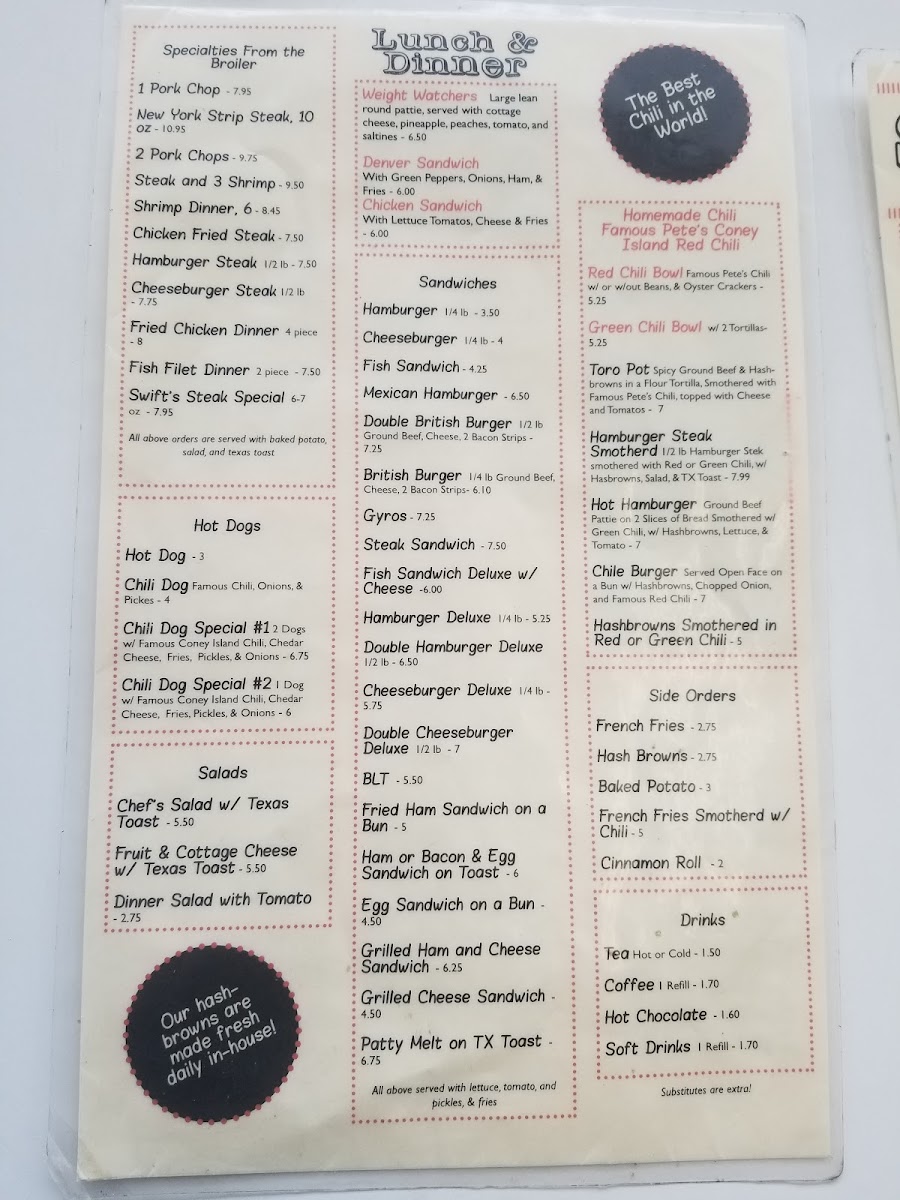 Specialties From the
Broiler
1 Pork Chop - 7.95
New York Strip Steak, 10
oz - 10.95
2 Pork Chops - 9.75
Steak and 3 Shrimp - 9.50
Shrimp Dinner, 6 - 8.45
Chicken Fried Steak - 7.50
Hamburger Steak 1/2 lb - 7.50
Cheeseburger Steak 1/2 lb
- 7.75
Fried Chicken Dinner 4 piece
- 8
Fish Filet Dinner 2 piece - 7.50
Swift's Steak Special 6-7
oz - 7.95
All above orders are served with baked potato,
salad, and texas toast
Hot Dogs
Hot Dog - 3
Chili Dog Famous Chili, Onions, &
Pickes - 4
Chili Dog Special #1 2 Dogs
w/ Famous Coney Island Chili, Chedar
Cheese, Fries, Pickles, & Onions - 6.75
Chili Dog Special #2 1 Dog
w/ Famous Coney Island Chili, Chedar
Cheese, Fries, Pickles, & Onions - 6
Salads
Chef's Salad w/ Texas
Toast - 5.50
Fruit & Cottage Cheese
w/ Texas Toast - 5.50
Dinner Salad with Tomato
- 2.75
Our hash-
browns are
made fresh
daily in-house!
Lunch &
Dinner
Weight Watchers Large lean
round pattie, served with cottage
cheese, pineapple, peaches, tomato, and
saltines - 6.50
Denver Sandwich
With Green Peppers, Onions, Ham, &
Fries - 6.00
Chicken Sandwich
With Lettuce Tomatos, Cheese & Fries
- 6.00
Sandwiches
Hamburger 1/4 lb - 3.50
Cheeseburger 1/4 lb - 4
Fish Sandwich - 4.25
Mexican Hamburger - 6.50
Double British Burger 1/2 lb
Ground Beef, Cheese, 2 Bacon Strips -
7.25
British Burger 1/4 lb Ground Beef,
Cheese, 2 Bacon Strips- 6.10
Gyros - 7.25
Steak Sandwich - 7.50
Fish Sandwich Deluxe w/
Cheese -6.00
Hamburger Deluxe 1/4 lb - 5.25
Double Hamburger Deluxe
1/2 lb - 6.50
Cheeseburger Deluxe 1/4 lb -
5.75
Double Cheeseburger
Deluxe 1/2 lb - 7
BLT - 5.50
Fried Ham Sandwich on a
Bun - 5
Ham or Bacon & Egg
Sandwich on Toast - 6
Egg Sandwich on a Bun -
4.50
Grilled Ham and Cheese
Sandwich - 6.25
Grilled Cheese Sandwich -
4.50
Patty Melt on TX Toast -
6.75
All above served with lettuce, tomato, and
pickles, & fries
The Best
Chili in the
World!
Homemade Chili
Famous Pete's Coney
Island Red Chili
Red Chili Bowl Famous Pete's Chili
w/ or w/out Beans, & Oyster Crackers -
5.25
Green Chili Bowl w/ 2 Tortillas-
5.25
Toro Pot Spicy Ground Beef & Hash-
browns in a Flour Tortilla, Smothered with
Famous Pete's Chili, topped with Cheese
and Tomatos - 7
Hamburger Steak
Smotherd 1/2 lb Hamburger Stek
smothered with Red or Green Chili, w/
Hasbrowns, Salad, & TX Toast - 7.99
Hot Hamburger Ground Beef
Pattie on 2 Slices of Bread Smothered w/
Green Chili, w/ Hashbrowns, Lettuce, &
Tomato - 7
Chile Burger Served Open Face on
a Bun w/ Hashbrowns, Chopped Onion,
and Famous Red Chili - 7
Hashbrowns Smothered in
Red or Green Chili - 5
Side Orders
French Fries - 2.75
Hash Browns - 2.75
Baked Potato - 3
French Fries Smotherd w/
Chili - 5
Cinnamon Roll - 2
Drinks
Tea Hot or Cold - 1.50
Coffee 1 Refill - 1.70
Hot Chocolate - 1.60
Soft Drinks 1 Refill - 1.70
Substitutes are extra!